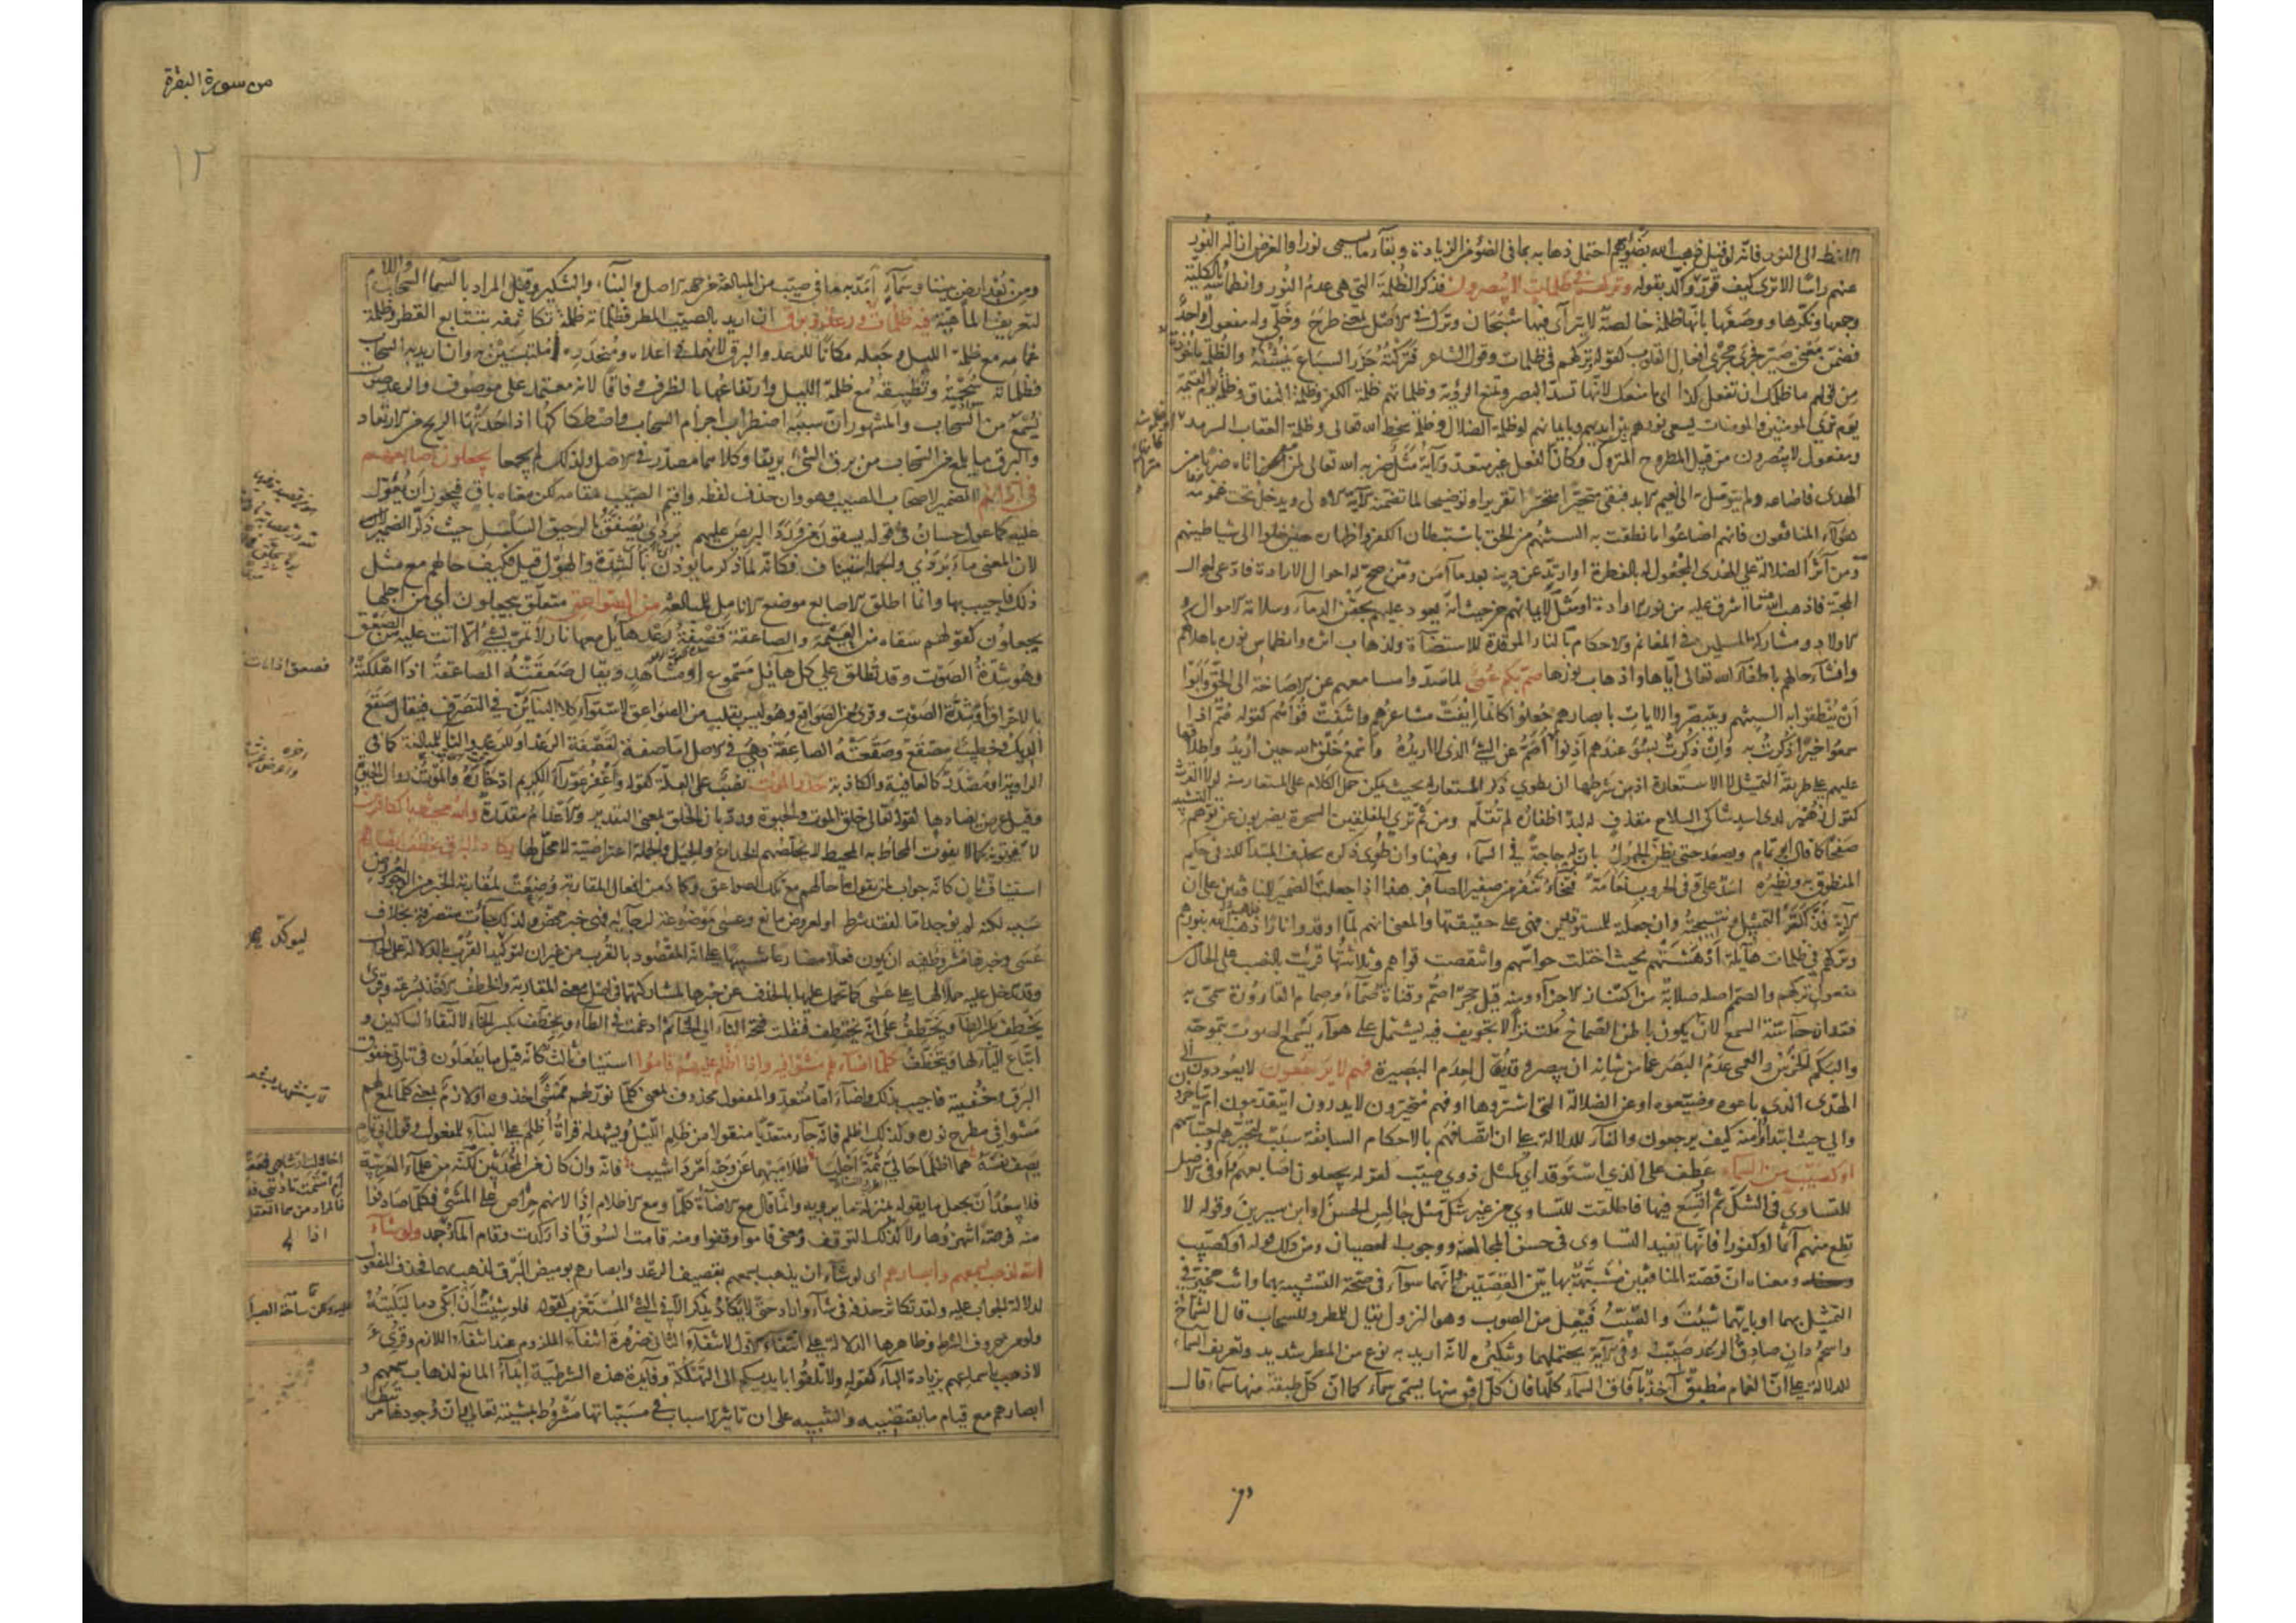 اللفظ الى النور فانه لو قيل ذهب الله بضوئهم احتمل ذهابه بما فى الضوء من الزيادة وبقاء ما يسمى نورا والغرض ازالة النور
عنهم راسا الا ترى كيف قرر ذلك واكد بقوله وتركهم فى ظلمات لا يبصرون فذكر الظلمة التى هى عدم النور وانطماسه بالكلية
وجمعها ونكرها ووصفها بانها ظلمة خالصة لا يتراءى فيها شبحان وترك فى الاصل بمعنى طرح وخلى وله مفعول واحد
فضمن معنى صير فجرى مجرى افعال القلوب كقوله وتركهم فى ظلمات وقول الشاعر فتركته جزر السباع ينشنه والظلمة ماخوذة
من قولهم ما ظلمك ان تفعل كذا اى ما منعك لانها تسد البصر وتمنع الرؤية وظلماتهم ظلمة الكفر وظلمة النفاق وظلمة يوم القيمة
يوم ترى المؤمنين والمومنات يسعى نورهم بين ايديهم وبايمانهم او ظلمة الضلال وظلمة سخط الله تعالى وظلمة العقاب السرمد
ومفعول لا يبصرون من قبيل المطروح المتروك وكان الفعل غير متعد والآية مثل ضربه الله تعالى لمن اتاه ضربا من
الهدى فاضاعه ولم يتوصل به الى نعيم الابد فبقى متحيرا متحسرا تقريرا وتوضيحا لما تضمنته الآية الاولى ويدخل تحت عمومه
هؤلاء المنافقون فانهم اضاعوا ما نطقت به السنتهم من الحق باستبطان الكفر واظهاره حين خلوا الى شياطينهم
ومن آثر الضلالة على الهدى المجعول له بالفطرة او ارتد عن دينه بعد ما آمن ومن صح له احوال الارادة فادعى احوال
المحبة فاذهب الله ما اشرق عليه من نور الارادة او مثل لايمانهم من حيث انه يعود عليهم بحقن الدماء وسلامة الاموال و
الاولاد ومشاركة المسلمين فى المغانم والاحكام بالنار الموقدة للاستضاءة ولذهاب اثره وانطماس نوره باهلاكهم
وافشاء حالهم باطفاء الله تعالى اياها واذهاب نورها صم بكم عمى لما سدوا مسامعهم عن الاصاخة الى الحق وابوا
ان ينطقوا به السنتهم ويتبصروا الآيات بابصارهم جعلوا كانما ايفت مشاعرهم وانتفت قواهم كقوله صم اذا
سمعوا خيرا ذكرت به وان ذكرت بسوء عندهم اذنوا اصم عن الشئ الذى لا اريده واسمع خلق الله حين اريد واطلاقها
عليهم على طريقة التمثيل لا الاستعارة اذ من شرطها ان يطوى ذكر المستعار له بحيث يمكن حمل الكلام على المستعار منه لولا القرينة
كقول زهير لدى اسد شاكى السلاح مقذف له لبد اظفاره لم تقلم ومن ثم ترى المفلقين السحرة يضربون عن توهم التشبيه
صفحا كما قال ابو تمام ويصعد حتى يظن الجهول بان له حاجة فى السماء وههنا وان طوى ذكره بحذف المبتدا لكنه فى حكم
المنطوق به ونظيره اسد على وفى الحروب نعامة فتخاء تنفر من صفير الصافر هذا اذا جعلت الضمير للمنافقين على ان
الآية فذلكة التمثيل ونتيجته وان جعلته للمستوقدين فهى على حقيقتها والمعنى انهم لما اوقدوا نارا ذهب الله بنورهم
وتركهم فى ظلمات هائلة ادهشتهم بحيث اختلت حواسهم وانتقصت قواهم وثلاثتها قرئت بالنصب على الحال من
مفعول تركهم والصمم اصله صلابة من اكتناز الاجزاء ومنه قيل حجر اصم وقناة صماء وصمام القارورة سمى به
فقدان حاسة السمع لان يكون باطن الصماخ مكتنزا لا تجويف فيه يشتمل على هواء يسمع الصوت بتموجه
والبكم الخرس والعمى عدم البصر عما من شانه ان يبصر وقد يقال لعدم البصيرة فهم لا يرجعون لا يعودون الى
الهدى الذى باعوه وضيعوه او عن الضلالة التى اشتروها او فهم متحيرون لا يدرون ايتقدمون ام يتاخرون
والى حيث ابتداوا منه كيف يرجعون والفاء للدلالة على ان اتصافهم بالاحكام السابقة سبب لتحيرهم واحتباسهم
او كصيب من السماء عطف على الذى استوقد اى كمثل ذوى صيب لقوله يجعلون اصابعهم واو فى الاصل
للتساوى فى الشك ثم اتسع فيها فاطلقت للتساوى من غير شك مثل جالس الحسن او ابن سيرين وقوله لا
تطع منهم آثما او كفورا فانها تفيد التساوى فى حسن المجالسة ووجوب العصيان ومن ذلك قوله او كصيب
ومعناه ان قصة المنافقين مشبهة بهاتين القصتين وانهما سواء فى صحة التشبيه بهما وانت مخير فى
التمثيل بهما او بايهما شئت والصيب فيعل من الصوب وهو النزول يقال للمطر وللسحاب قال الشماخ
واسحم دان صادق الرعد صيب وفى الآية يحتملهما وتنكيره لانه اريد به نوع من المطر شديد وتعريف السماء
للدلالة على ان الغمام مطبق آخذ بآفاق السماء كلها فان كل افق منها يسمى سماء كما ان كل طبقة منها سماء قال
من سورة البقرة
١٢
ومن بعد ارض بيننا وسماء امد به ما فى صيب من المبالغة من جهة الاصل والبناء والتنكير وقيل المراد بالسماء السحاب واللام
لتعريف الماهية فيه ظلمات ورعد وبرق ان اريد بالصيب المطر فظلماته ظلمة تكاثفه بتتابع القطر وظلمة
غمامه مع ظلمة الليل وجعله مكانا للرعد والبرق لانهما فى اعلاه ومنحدره ملتبسين به وان اريد به السحاب
فظلماته سحمته وتطبيقه مع ظلمة الليل وارتفاعها بالظرف وفاقا لانه معتمد على موصوف والرعد صوت
يسمع من السحاب والمشهور ان سببه اضطراب اجرام السحاب واصطكاكها اذا حدتها الريح من الارتعاد
والبرق ما يلمع من السحاب من برق الشئ بريقا وكلاهما مصدر فى الاصل ولذلك لم يجمعا يجعلون اصابعهم
فى آذانهم الضمير لاصحاب الصيب وهو وان حذف لفظه واقيم الصيب مقامه لكن معناه باق فيجوز ان يعول
عليه كما عول حسان فى قوله يسقون من ورد البريص عليهم بردى يصفق بالرحيق السلسل حيث ذكر الضمير
لان المعنى ماء بردى والجملة استيناف فكانه لما ذكر ما يوذن بالشدة والهول قيل فكيف حالهم مع مثل
ذلك فاجيب بها وانما اطلق الاصابع موضع الانامل للمبالغة من الصواعق متعلق بيجعلون اى من اجلها
يجعلون كقولهم سقاه من العيمة والصاعقة قصفة رعد هائل معها نار لا تمر بشئ الا اتت عليه من الصعق
وهو شدة الصوت وقد تطلق على كل هائل مسموع او مشاهد ويقال صعقته الصاعقة اذا اهلكته
بالاحراق او شدة الصوت وقرئ من الصواقع وهو ليس بقلب من الصواعق لاستواء كلا البنائين فى التصرف فيقال صقع
الديك وخطيب مصقع وصقعته الصاعقة وهى فى الاصل اما صفة لقصفة الرعد او للرعد والتاء للمبالغة كما فى
الراوية او مصدر كالعافية والكاذبة حذر الموت نصب على العلة كقوله واغفر عوراء الكريم ادخاره والموت زوال الحيوة
وقيل عرض يضادها لقوله تعالى خلق الموت والحيوة ورد بان الخلق بمعنى التقدير والاعدام مقدرة والله محيط بالكافرين
لا يفوتونه كما لا يفوت المحاط به المحيط لا يخلصهم الخداع والحيل والجملة اعتراضية لا محل لها يكاد البرق يخطف ابصارهم
استيناف ثان كانه جواب لمن يقول ما حالهم مع تلك الصواعق وكاد من افعال المقاربة وضعت لمقاربة الخبر من الوجود لعروض
سببه لكنه لم يوجد اما لفقد شرط او لعروض مانع وعسى موضوعة لرجائه فهى خبر محض ولذلك جاءت متصرفة بخلاف
عسى وخبرها مشروط فيه ان يكون فعلا مضارعا تنبيها على انه المقصود بالقرب من غير ان لتوكيد القرب بالدلالة على الحال
وقد تدخل عليه حملا لها على عسى كما تحمل عليها بالحذف من خبرها لمشاركتهما فى اصل معنى المقاربة والخطف الاخذ بسرعة وقرئ
يخطف بكسر الطاء ويختطف على انه يختطف فنقلت فتحة التاء الى الخاء ثم ادغمت فى الطاء ويخطف بكسر الخاء لالتقاء الساكنين و
اتباع الياء لها ويتخطف كلما اضاء لهم مشوا فيه واذا اظلم عليهم قاموا استيناف ثالث كانه قيل ما يفعلون فى تارتى خفوق
البرق وخفيته فاجيب بذلك واضاء اما متعد والمفعول محذوف بمعنى كلما نور لهم ممشى اخذوه او لازم بمعنى كلما لمع لهم
مشوا فى مطرح نوره وكذلك اظلم فانه جاء متعديا منقولا من ظلم الليل ويشهد له قراءة اظلم على البناء للمفعول وقول ابى تمام
يصف نفسه هما اظلما حالى ثمة اجليا ظلاميهما عن وجه امرد اشيب فانه وان كان من المحدثين لكنه من علماء العربية
فلا يبعد ان يجعل ما يقوله بمنزلة ما يرويه وانما قال مع الاضاءة كلما ومع الاظلام اذا لانهم حراص على المشى فكلما صادفوا
منه فرصة انتهزوها ولا كذلك التوقف ومعنى قاموا وقفوا ومنه قامت السوق اذا ركدت وقام الماء جمد ولو شاء
الله لذهب بسمعهم وابصارهم اى لو شاء ان يذهب بسمعهم بقصيف الرعد وابصارهم بوميض البرق لذهب بهما فحذف المفعول
لدلالة الجواب عليه ولقد تكاثر حذفه فى شاء واراد حتى لا يكاد يذكر الا فى الشئ المستغرب كقوله فلو شئت ان ابكى دما لبكيته
ولو من حروف الشرط وظاهرها الدلالة على انتفاء الاول لانتفاء الثانى ضرورة انتفاء الملزوم عند انتفاء اللازم وقرئ
لاذهب باسماعهم بزيادة الباء كقوله ولا تلقوا بايديكم الى التهلكة وفائدة هذه الشرطية ابداء المانع لذهاب سمعهم و
ابصارهم مع قيام ما يقتضيه والتنبيه على ان تاثير الاسباب فى مسبباتها مشروط بمشيئة تعالى وان وجودها مرتبطا